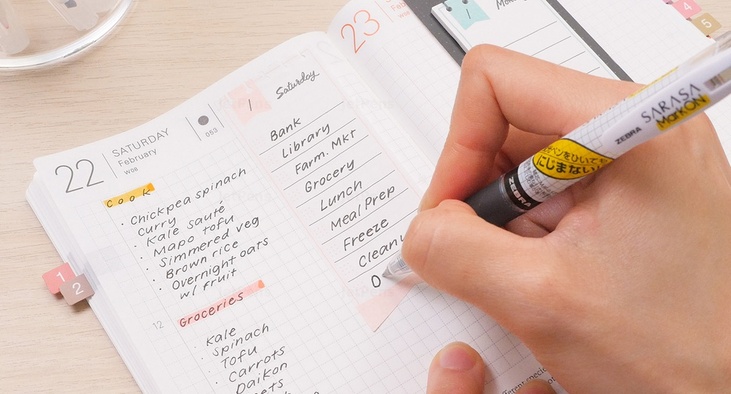 22
SATURDAY
February
053
Cook
· Chickpea spinach
curry
· Kale sauté
· Mapo tofu
· Simmered veg
· Brown rice
· Overnight oats
w/ fruit
12
Groceries
· Kale
· Spinach
· Tofu
· Carrots
· Daikon
1
Saturday
Bank
Library
Farm. Mkt
Grocery
Lunch
Meal Prep
Freeze
Clean
1
2
23
1
4
5
ZEBRA SARASA
MarkON
にじまない
ZEBRA